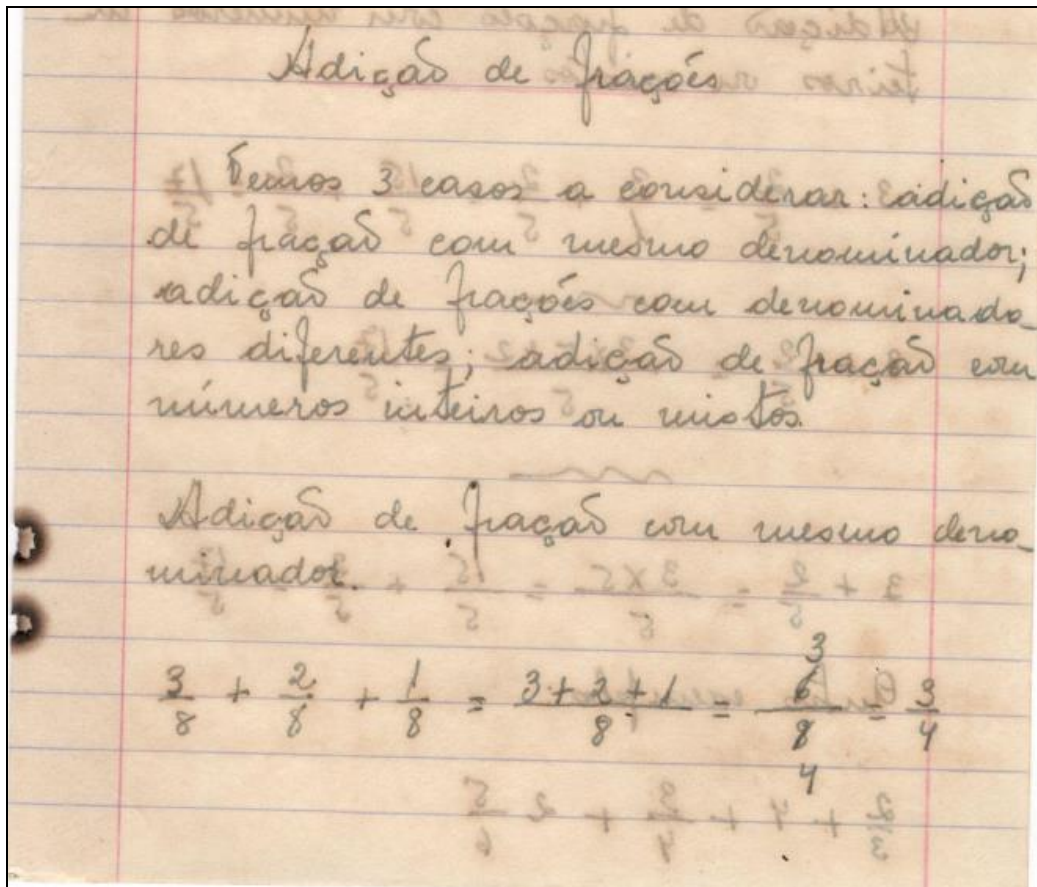 Adição de frações
Temos 3 casos a considerar: adição
de fração com mesmo denominador;
adição de frações com denominado_
res diferentes; adição de fração com
números inteiros ou mistos.
Adição de fração com mesmo deno_
minador.
3/8 + 2/8 + 1/8 = (3+2+1)/8 = 6/8 = 3/4
3
4